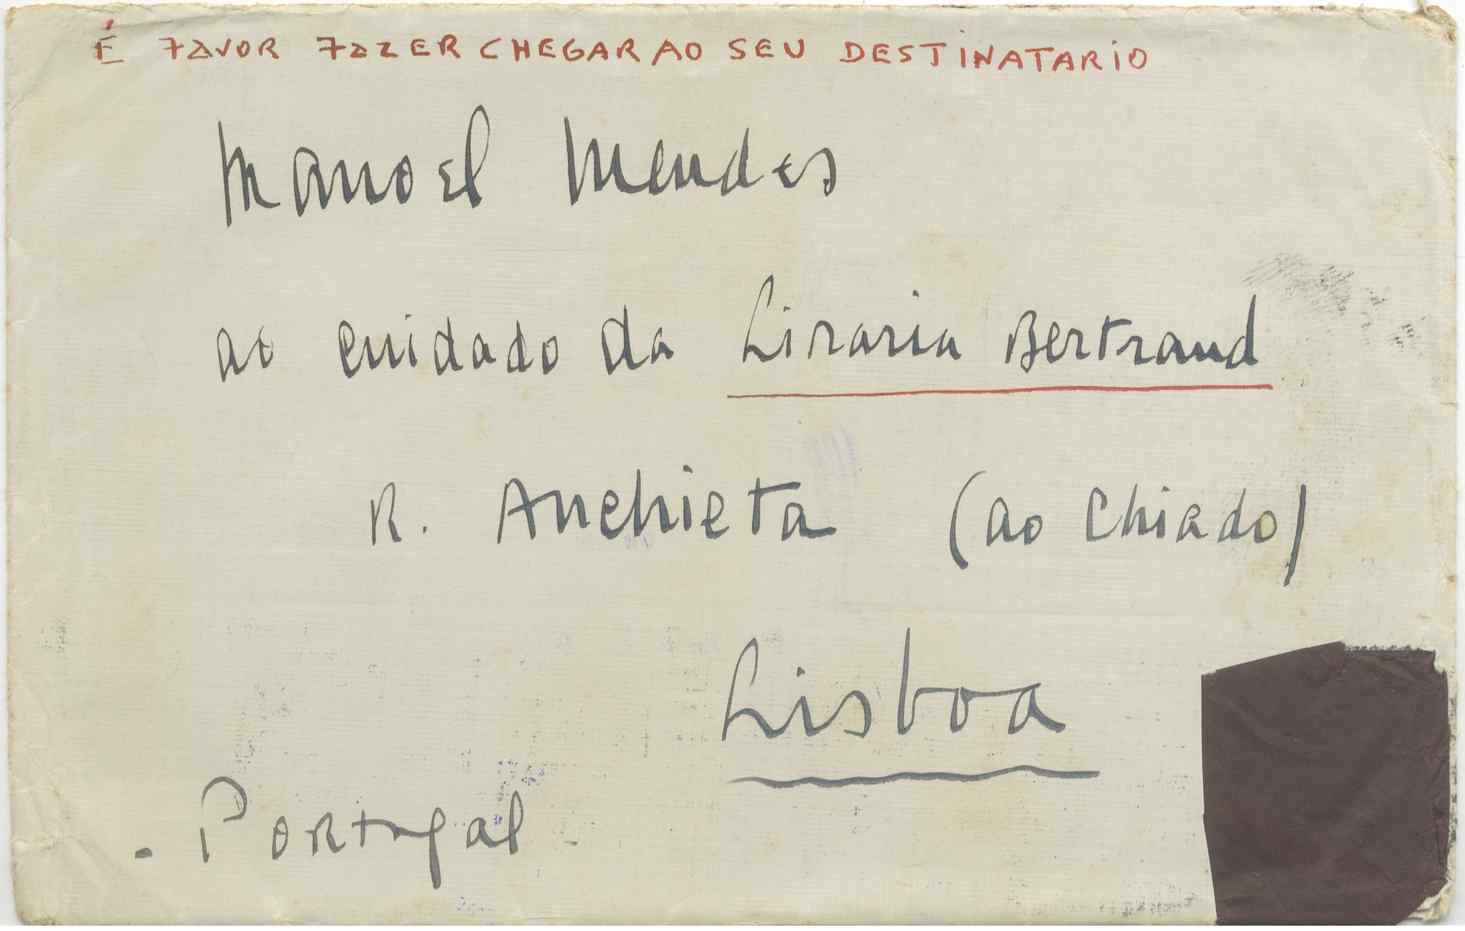 É FAVOR FAZER CHEGAR AO SEU DESTINATARIO
Manoel Mendes
ao cuidado da Liraria Bertrand
R. Anchieta (ao Chiado)
Lisboa
- Portugal -